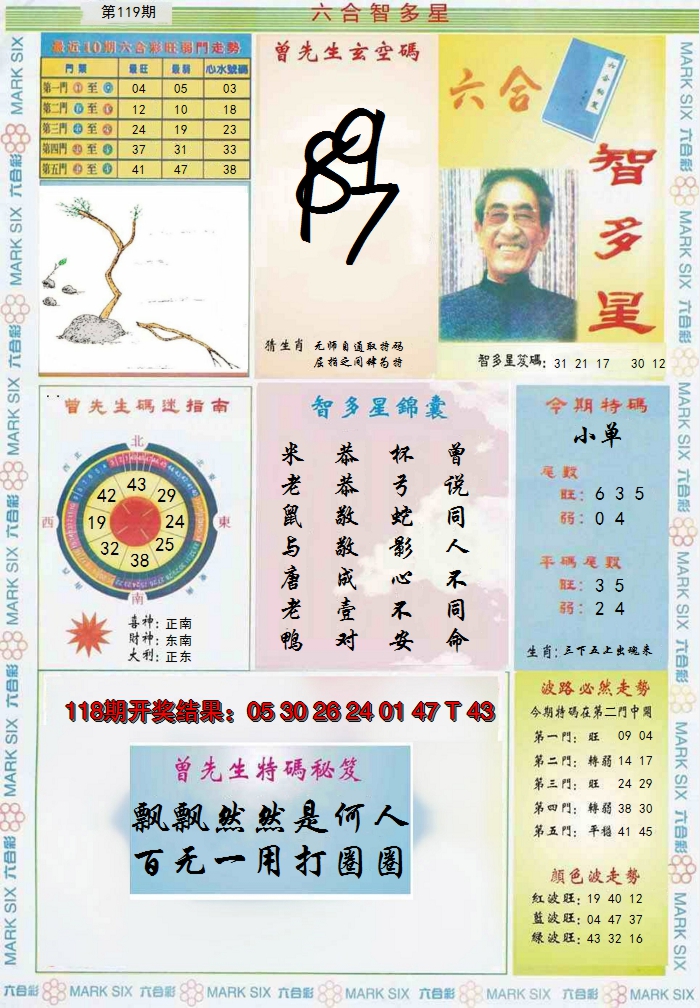 第119期
六合智多星
最近10期六合彩旺弱門走勢
門類 最旺 最弱 心水號碼
第一門 至 04 05 03
第二門 至 12 10 18
第三門 至 24 19 23
第四門 至 37 31 33
第五門 至 41 47 38
曾先生玄空碼
猜生肖 无师自通取特码
屈指之间肆为特
六合
智多星
智多星笈碼: 31 21 17 30 12
曾先生碼迷指南
北
43
42 29
西 19 24 東
32 25
38
南
喜神: 正南
财神: 东南
大利: 正东
智多星錦囊
曾说同人不同命
杯弓蛇影心不安
恭恭敬敬成壹对
米老鼠与唐老鸭
今期特碼
小单
尾數
旺: 6 3 5
弱: 0 4
平碼尾數
旺: 3 5
弱: 2 4
生肖: 三下五上出魂来
118期开奖结果: 05 30 26 24 01 47 T 43
曾先生特碼秘笈
飘飘然然是何人
百元一用打圈圈
波路必然走勢
今期特碼在第二門中開
第一門: 旺 09 04
第二門: 轉弱 14 17
第三門: 旺 24 29
第四門: 轉弱 38 30
第五門: 平穩 41 45
顏色波走勢
紅波旺: 19 40 12
藍波旺: 04 47 37
綠波旺: 43 32 16
六合彩 MARK SIX 六合彩 MARK SIX 六合彩 MARK SIX 六合彩 MARK SIX 六合彩 MARK SIX